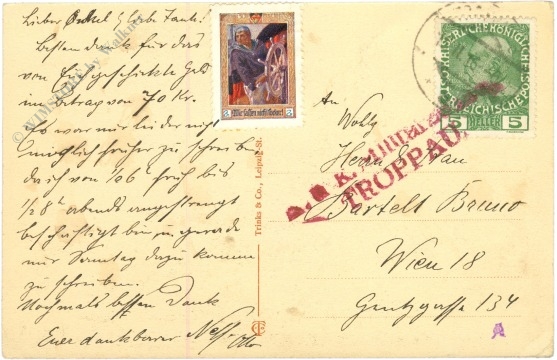 Lieber Onkel & liebe Tante!
Besten Dank für das
von Euch geschickte Geld
im Betrag von 70 Kr.
Es war mir leider nicht
möglich früher zu schreiben
da ich von 1/2 6 h früh bis
1/2 8 h abends angestrengt
beschäftigt bin u. gerade
nur Sonntag dazu komme
zu schreiben.
Nochmals besten Dank
Euer dankbarer Neffe Otto
© PHILSTORE by Kalkuhl
Wir lassen nicht locker!
2 2
Trinks & Co., Leipzig-St.
KAISERLICHE KÖNIGLICHE
ÖSTERREICHISCHE POST
5 HELLER 5
K. K.
TROPPAU
An
Wohlg.
Herrn & Frau
Bartelt Bruno
Wien 18
Gentzgasse 134
A